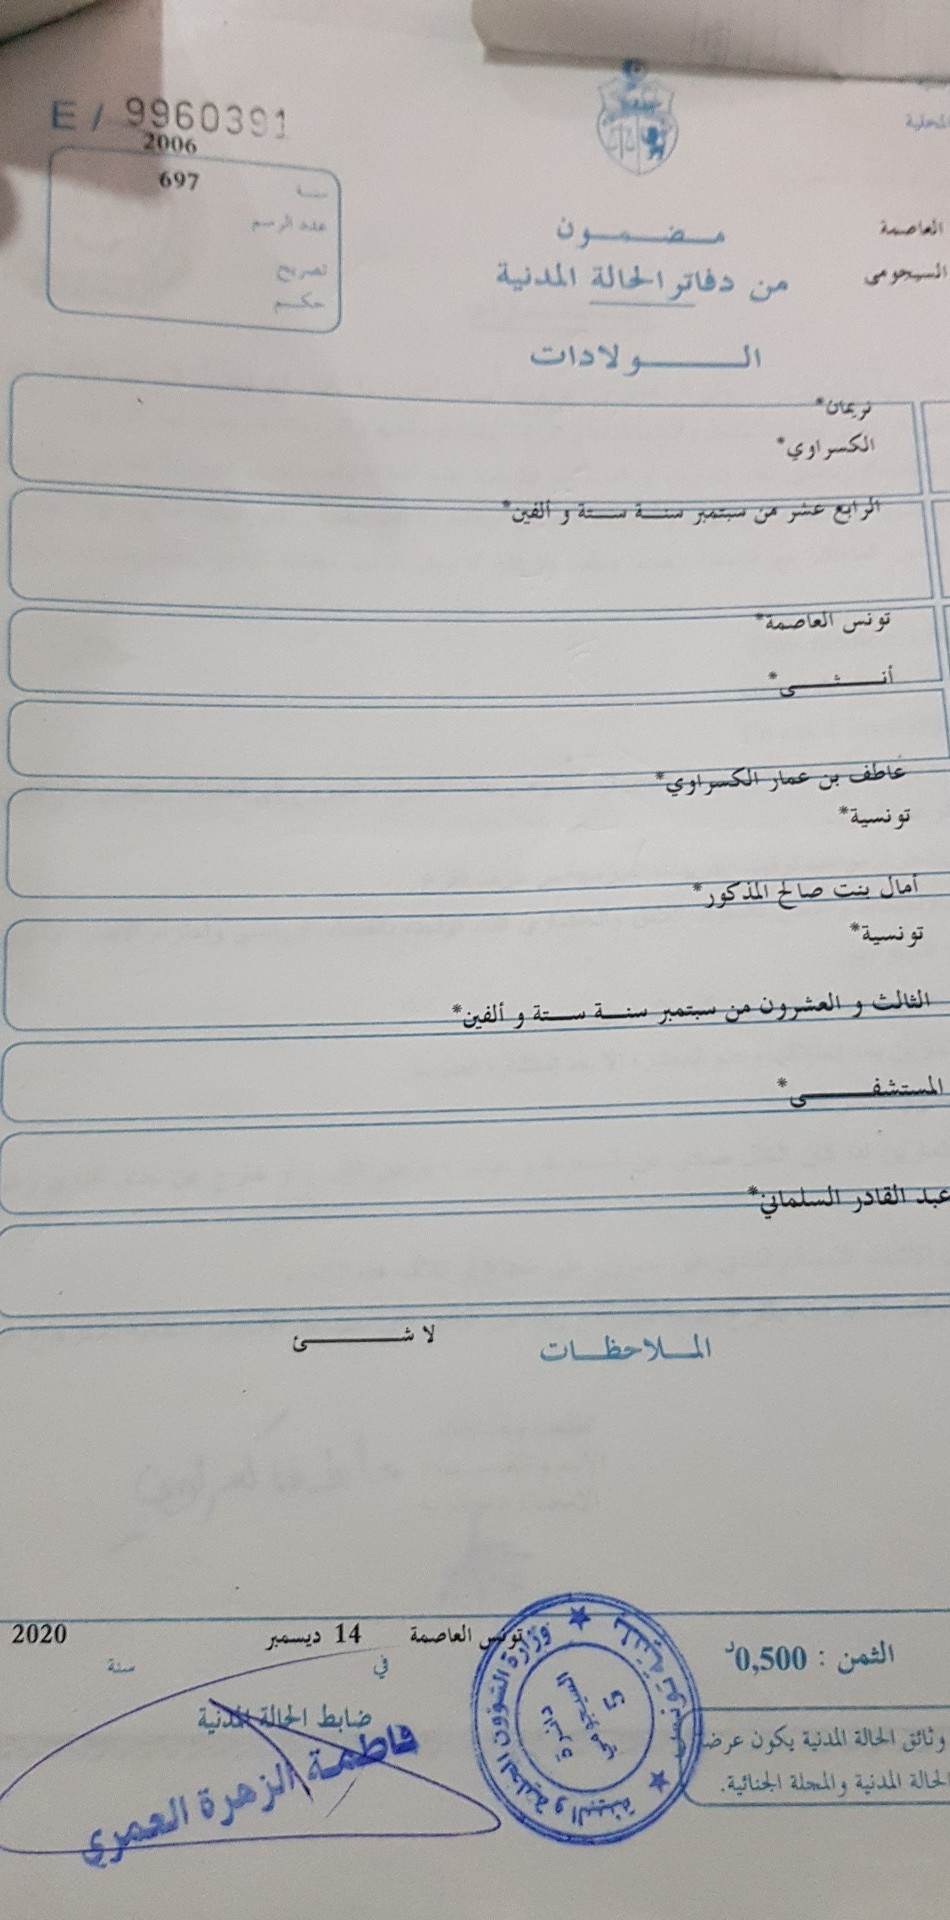 E / 9960391
المحلية
2006
697
سنة
عدد الرسم
تصريح
حكم
العاصمة
السيجومي
مضمون
من دفاتر الحالة المدنية
الولادات
نريمان*
الكسراوي*
الرابع عشر من سبتمبر سنة ستة و ألفين*
تونس العاصمة*
أنثى*
عاطف بن عمار الكسراوي*
تونسية*
أمال بنت صالح المذكور*
تونسية*
الثالث و العشرون من سبتمبر سنة ستة و ألفين*
المستشفى*
عبد القادر السلماني*
الملاحظات
لا شئ
تونس العاصمة 14 ديسمبر 2020
في سنة
الثمن : 0,500د
ضابط الحالة المدنية
فاطمة الزهرة العمري
وثائق الحالة المدنية يكون عرضة
الحالة المدنية والمجلة الجنائية.
وزارة الشؤون المحلية و البيئة
بلدية تونس
دائرة
السيجومي
5